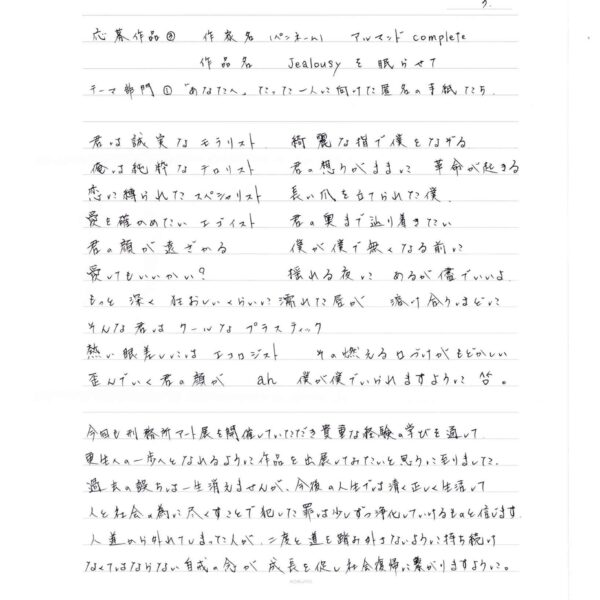 7.
応募作品④ 作家名(ペンネーム) アルマンド complete
作品名 Jealousy を 眠らせて
テーマ部門① 「あなたへ」たった一人に向けた匿名の手紙たち
君は誠実なモラリスト 綺麗な指で僕をなぞる
俺は純粋なテロリスト 君の想うがままに 革命が起きる
恋に縛られたスペシャリスト 長い爪を立てられた僕
愛を確かめたい エゴイスト 君の奥まで辿り着きたい
君の顔が遠ざかる 僕が僕で無くなる前に
愛してもいいかい? 揺れる夜に あるが儘でいいよ
もっと 深く 狂おしいくらいに濡れた唇が 溶け合うほどに
そんな君は クールな プラスティック
熱い眼差しには エコロジスト その燃える口づけがもどかしい
歪んでいく君の顔が ah 僕が僕でいられますように 答。
今回も刑務所アート展を開催していただき貴重な経験の学びを通して
更生への一歩へとなれるように作品を出展してみたいと思うに至りました。
過去の過ちは一生消えませんが、今後の人生では清く正しく生活して
人と社会の為に尽くすことで犯した罪は少しずつ浄化していけるものと信じます。
人道から外れてしまった人が、二度と道を踏み外さないように持ち続け
なくてはならない自戒の念が 成長を促し社会復帰に繋がりますように。
KOKUYO